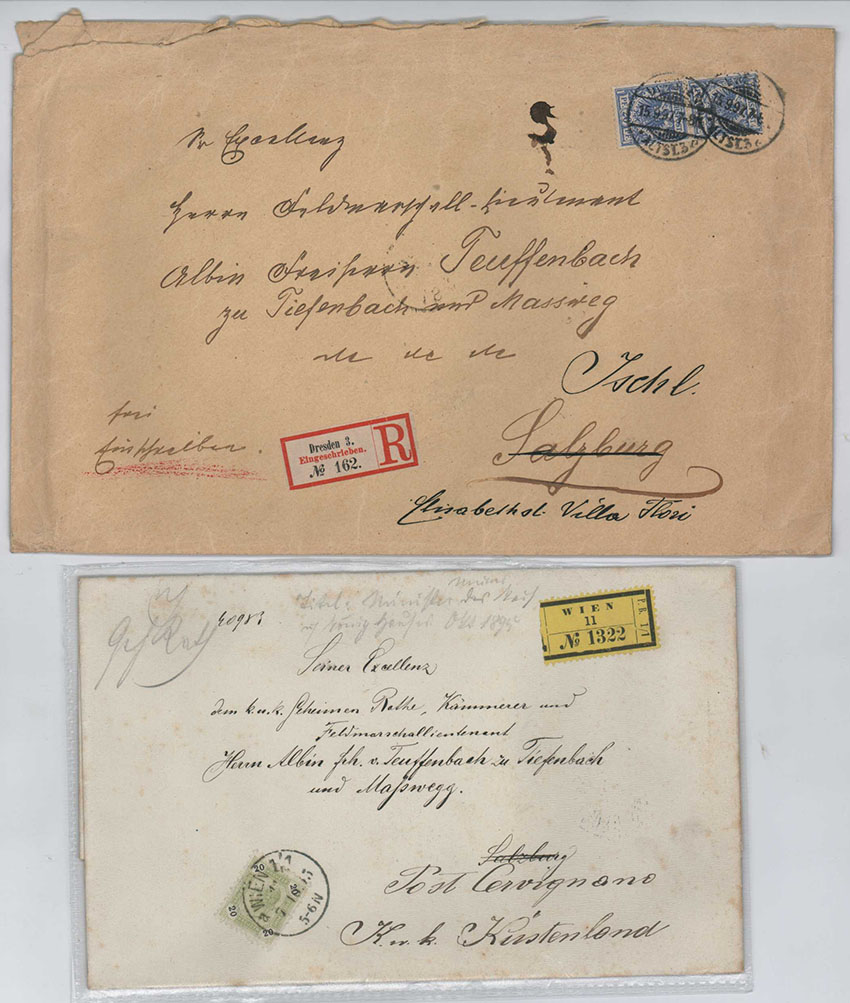 Sr Excellenz
Herrn Feldmarschall-Lieutenant
Albin Freiherrn Teuffenbach
zu Tiefenbach und Massweg
Ischl.
Salzburg
Elisabethst. Villa Flori
frei
Einschreiben.
Dresden 3.
Eingeschrieben.
№ 162.
R
15.9.97.7-8
ALTST.3
15.9.97.7-8
ALTST.3
40983
Titel: Minister des
könig Hauses Okt 1895
Geh Rath
WIEN
11
№ 1322
P.R. 1/1
Seiner Excellenz
dem k.u.k. Geheimen Rathe, Kämmerer und
Feldmarschallieutenant
Herrn Albin Frh. v. Teuffenbach zu Tiefenbach
und Maßwegg.
Salzburg
Post Cervignano
K.u.k. Küstenland
WIEN 1/1
5-6N
20
20
20